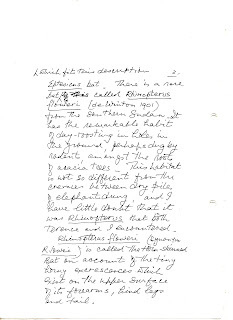 which fit this description 2.
Eptesicus bat. There is a rare
bat called Rhinopterus
floweri (de Winton 1901)
from the Southern Sudan. It
has the remarkable habit
of day-roosting in holes in
the ground, perhaps dug by
rodents amongst the roots
of acacia trees. This habitat
is not so different from the
crevices between dry boles
of elephant dung and I
have little doubt that it
was Rhinopterus that both
Terence and I encountered.
Rhinopterus floweri
is called the Horn-skinned
Bat on account of the tiny
horny excrescences which
exist on the upper surface
of its forearms, hind legs
and tail.